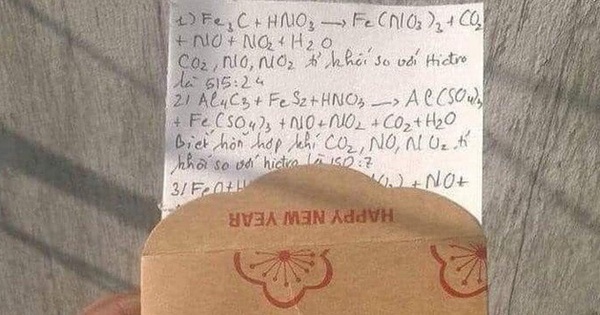 1) Fe3C + HNO3 → Fe(NO3)3 + CO2
+ NO + NO2 + H2O
CO2, NO, NO2 tỉ khối so với Hiđro
là 515:24
2) Al4C3 + FeS2 + HNO3 → Al(SO4)3
+ Fe(SO4)3 + NO + NO2 + CO2 + H2O
Biết hỗn hợp khí CO2, NO, NO2 tỉ
khối so với hiđro là 150:7
3) FeO + NO +
HAPPY NEW YEAR